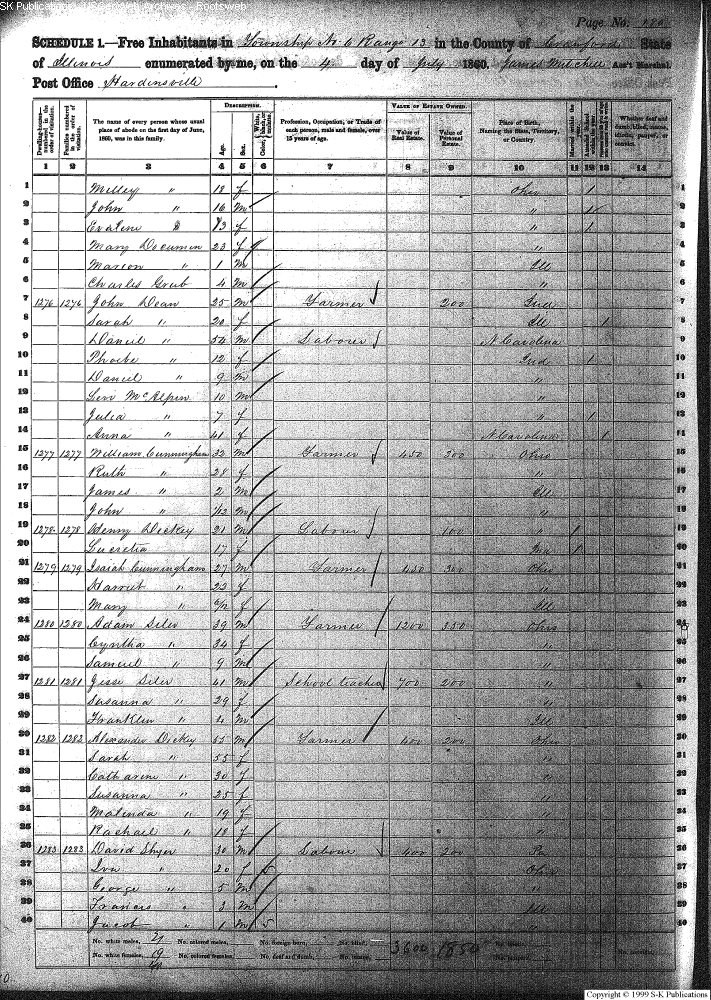 SK Publications - USGenWeb Archives - Rootsweb
Page No.
SCHEDULE 1.—Free Inhabitants in Township No 6 Range 13 in the County of Crawford State
of Illinois enumerated by me, on the 4 day of July 1860. James Mitchell Ass't Marshal.
Post Office Hardinsville.
Dwelling-houses—numbered in the order of visitation.
Families numbered in the order of visitation.
The name of every person whose usual place of abode on the first day of June, 1860, was in this family.
DESCRIPTION.
Age.
Sex.
Color, White, black, or mulatto.
Profession, Occupation, or Trade of each person, male and female, over 15 years of age.
VALUE OF ESTATE OWNED.
Value of Real Estate.
Value of Personal Estate.
Place of Birth, Naming the State, Territory, or Country.
Married within the year.
Whether deaf and dumb, blind, insane, idiotic, pauper, or convict.
1 2 3 4 5 6 7 8 9 10 11 12 13 14
1 Milley " 18 f Ohio 1 1
2 John " 16 m " 1 2
3 13 f " 1 3
4 Mary 23 f " 4
5 Marion " 1 m Ill 5
6 Charles Grub 4 m " 6
7 1276 1276 John Dean 25 m Farmer 200 Ind 7
8 Sarah " 20 f Ill 1 8
9 Daniel " 54 m Labour N Carolina 9
10 Phoebe " 12 f Ind 1 10
11 Daniel " 9 m " 11
12 McAlpin 10 m " 12
13 Julia " 7 f " 1 13
14 Anna " 41 f N Carolina 1 14
15 1277 1277 William Cunningham 32 m Farmer 450 300 Ohio 15
16 Ruth " 28 f " 16
17 James " 2 m Ill 17
18 John " m " 18
19 1278 1278 Henry Dickey 21 m Labour 100 " 1 19
20 Lucretia 17 f 1 20
21 1279 1279 Isaiah Cunningham 27 m Farmer 450 300 Ohio 21
22 Harriet " 22 f " 22
23 Mary " f Ill 23
24 1280 1280 Adam Siler 39 m Farmer 1200 350 Ohio 24
25 Cyntha " 34 f " 25
26 Samuel " 9 m " 26
27 1281 1281 Jesse Siler 41 m School teacher 700 200 " 27
28 Susanna " 29 f " 28
29 Franklin " 4 m Ill 29
30 1282 1282 Alexander Dickey m Farmer 400 200 Ohio 30
31 Sarah " 55 f " 31
32 Catharine " 30 f
33 Susanna " 25 f
34 Malinda " 19 f
35 Rachael " 18 f "
36 1283 1283 David 30 m Labour 400 200 Pa
37 " 20 f Ohio
38 George " 5 m "
39 Francis " 3 m Ill
40 Jacob " 1 m " 40
No. white males, 21 No. colored males, No. foreign born, No. blind, 3600 1850
No. white females, 19 No. colored females, No. deaf and dumb, No. insane,
40
Copyright © 1999 S-K Publications